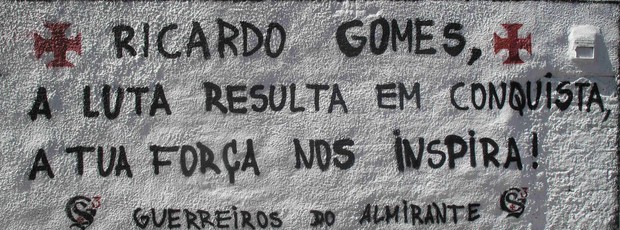 RICARDO GOMES,
A LUTA RESULTA EM CONQUISTA,
A TUA FORÇA NOS INSPIRA!
GUERREIROS DO ALMIRANTE